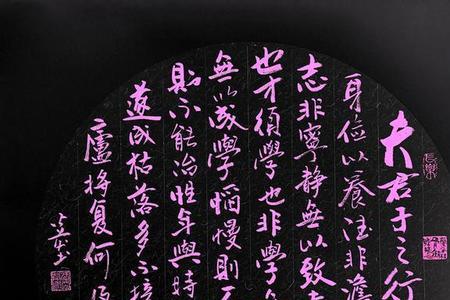 夫君子之行
長樂
身儉以養德非澹
志非寧静無以致
也才須學也非學
無以成學慆慢則
則不能治性年與時
遂成枯落多不接
廬将復何